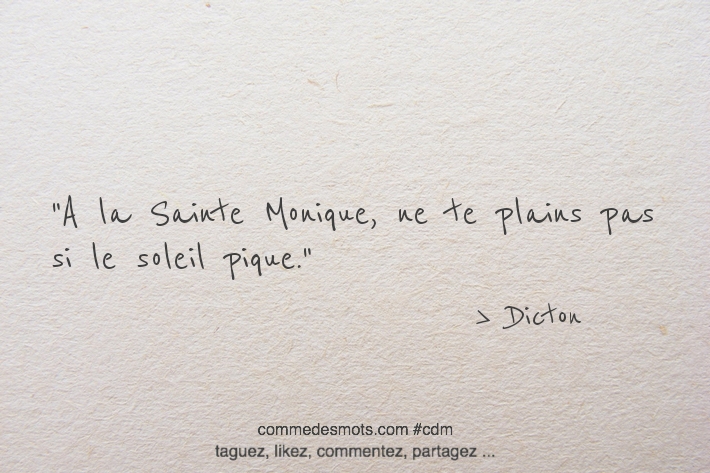 "A la Sainte Monique, ne te plains pas
si le soleil pique."
> Dicton
commedesmots.com #cdm
taguez, likez, commentez, partagez ...